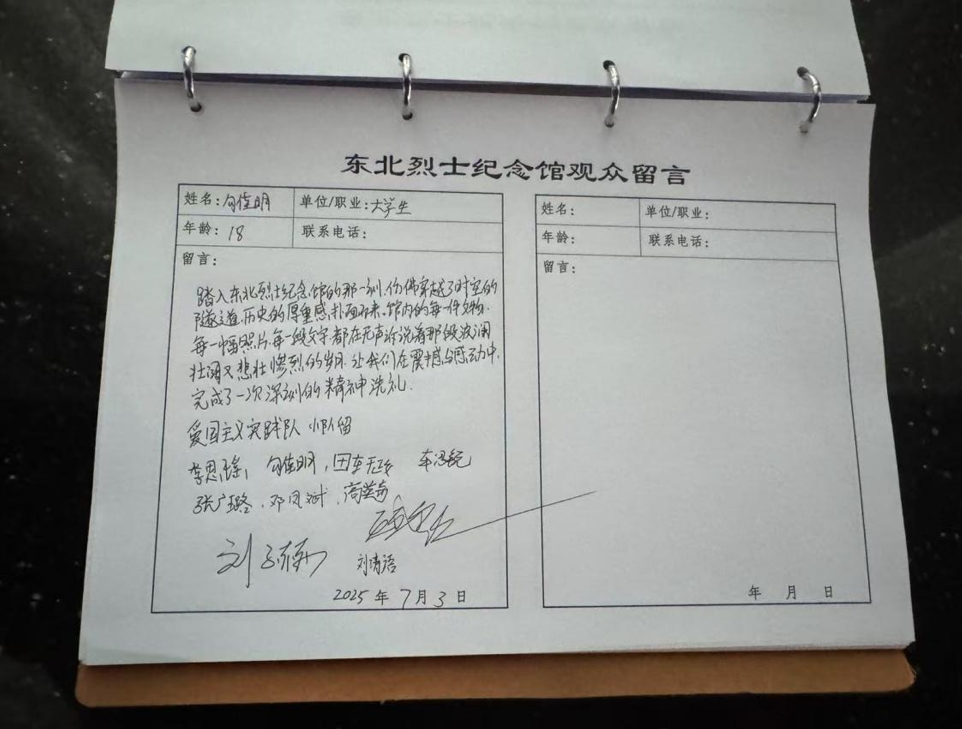 东北烈士纪念馆观众留言
姓名：句佳明 单位/职业：大学生
年龄：18 联系电话：
留言：
踏入东北烈士纪念馆的那一刻,仿佛穿越了时空的
隧道,历史的厚重感,扑面而来,馆内的每一件文物.
每一幅照片,每一段文字,都在无声诉说着那段波澜
壮阔又悲壮惨烈的岁月.让我们在震撼与感动中,
完成了一次深刻的精神洗礼.
爱国主义实践队 小队留
句佳明,
张广璐.邓凤斌.
刘清语
2025年7月3日
姓名： 单位/职业：
年龄： 联系电话：
留言：
年 月 日